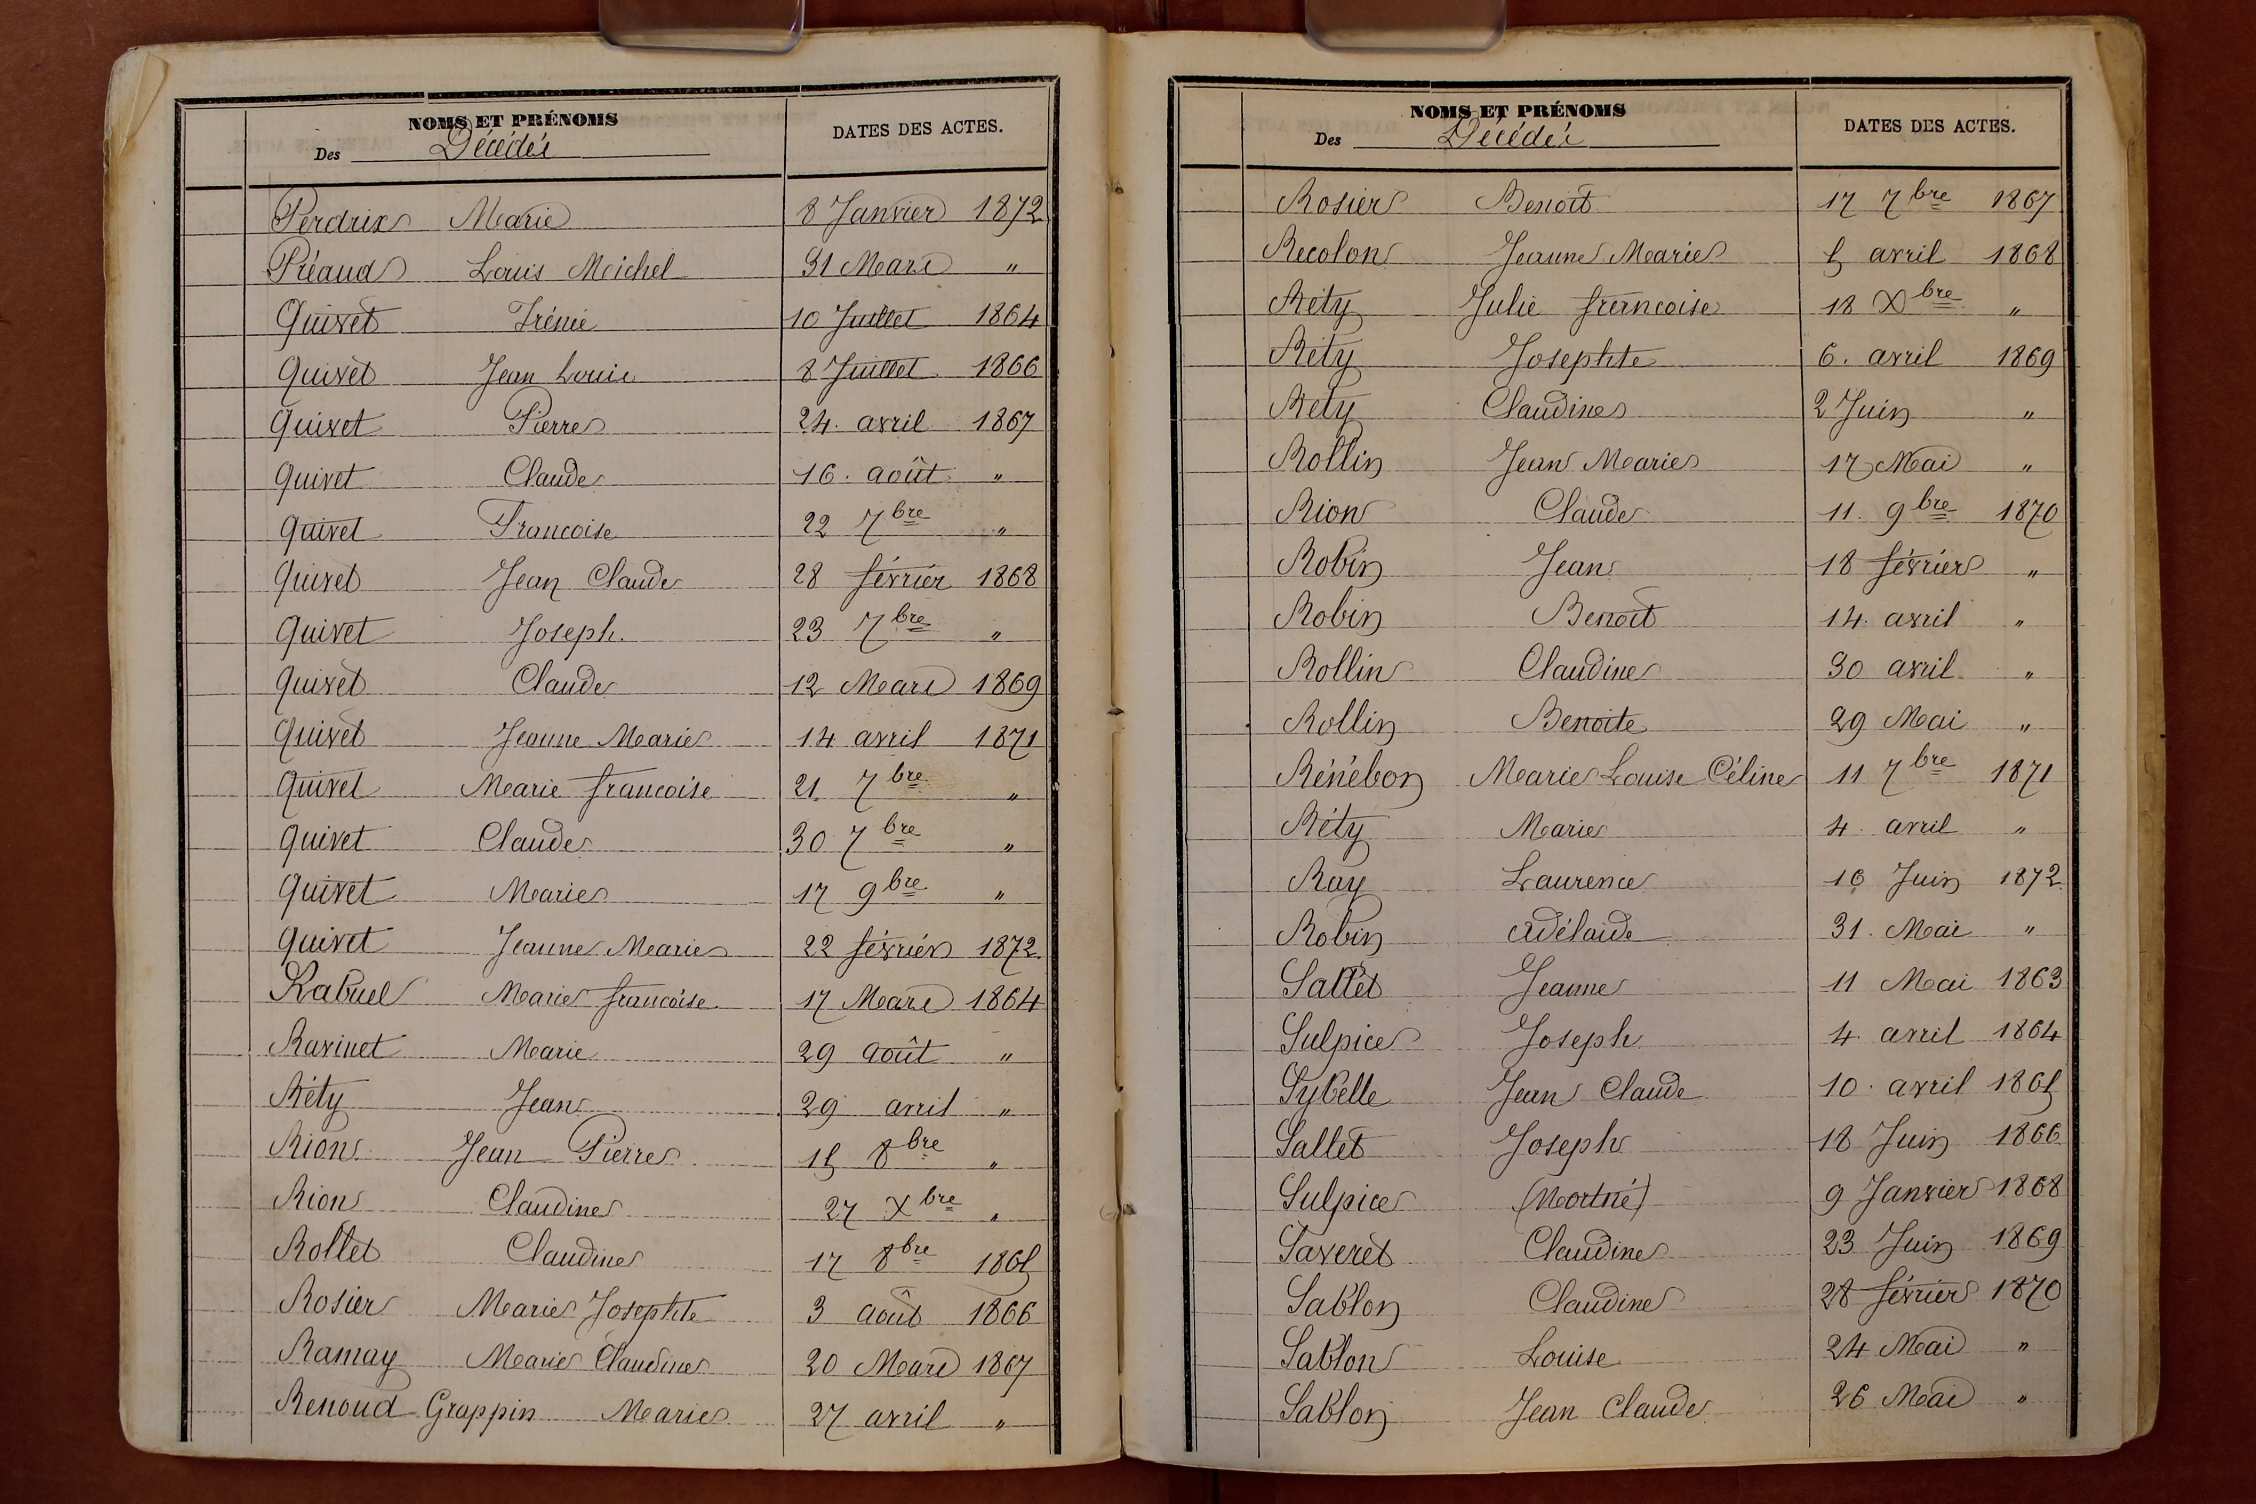 NOMS ET PRÉNOMS
Des Décédés
DATES DES ACTES.
Perdrix Marie 8 Janvier 1872
Préaud Louis Michel 31 Mars "
Quivet Irénée 10 Juillet 1864
Quivet Jean Louis 8 Juillet 1866
Quivet Pierre 24 avril 1867
Quivet Claude 16 août "
Quivet Francoise 22 7bre "
Quivet Jean Claude 28 février 1868
Quivet Joseph 23 7bre "
Quivet Claude 12 Mars 1869
Quivet Jeanne Marie 14 avril 1871
Quivet Marie francoise 21 7bre "
Quivet Claude 30 7bre "
Quivet Marie 17 9bre "
Quivet Jeanne Marie 22 février 1872
Rabuel Marie francoise 17 Mars 1864
Ravinet Marie 29 août "
Réty Jean 29 avril "
Rion Jean Pierre 15 8bre "
Rion Claudine 27 Xbre "
Rollet Claudine 17 8bre 1865
Rosier Marie Josephte 3 août 1866
Ramay Marie Claudine 20 Mars 1867
Renoud Grappin Marie 27 avril "
NOMS ET PRÉNOMS
Des Décédés
DATES DES ACTES.
Rosier Benoit 17 7bre 1867
Recolon Jeanne Marie 5 avril 1868
Réty Julie francoise 18 Xbre "
Réty Josephte 6 avril 1869
Réty Claudine 2 Juin "
Rollin Jean Marie 17 Mai "
Rion Claude 11 9bre 1870
Robin Jean 18 février "
Robin Benoit 14 avril "
Rollin Claudine 30 avril "
Rollin Benoite 29 Mai "
Rénébon Marie Louise Céline 11 7bre 1871
Réty Marie 4 avril "
Ray Laurence 16 Juin 1872
Robin adélaide 31 Mai "
Sallet Jeanne 11 Mai 1863
Sulpice Joseph 4 avril 1864
Sybelle Jean Claude 10 avril 1865
Sallet Joseph 18 Juin 1866
Sulpice (Mortné) 9 Janvier 1868
Saveret Claudine 23 Juin 1869
Sablon Claudine 28 février 1870
Sablon Louise 24 Mai "
Sablon Jean Claude 26 Mai "